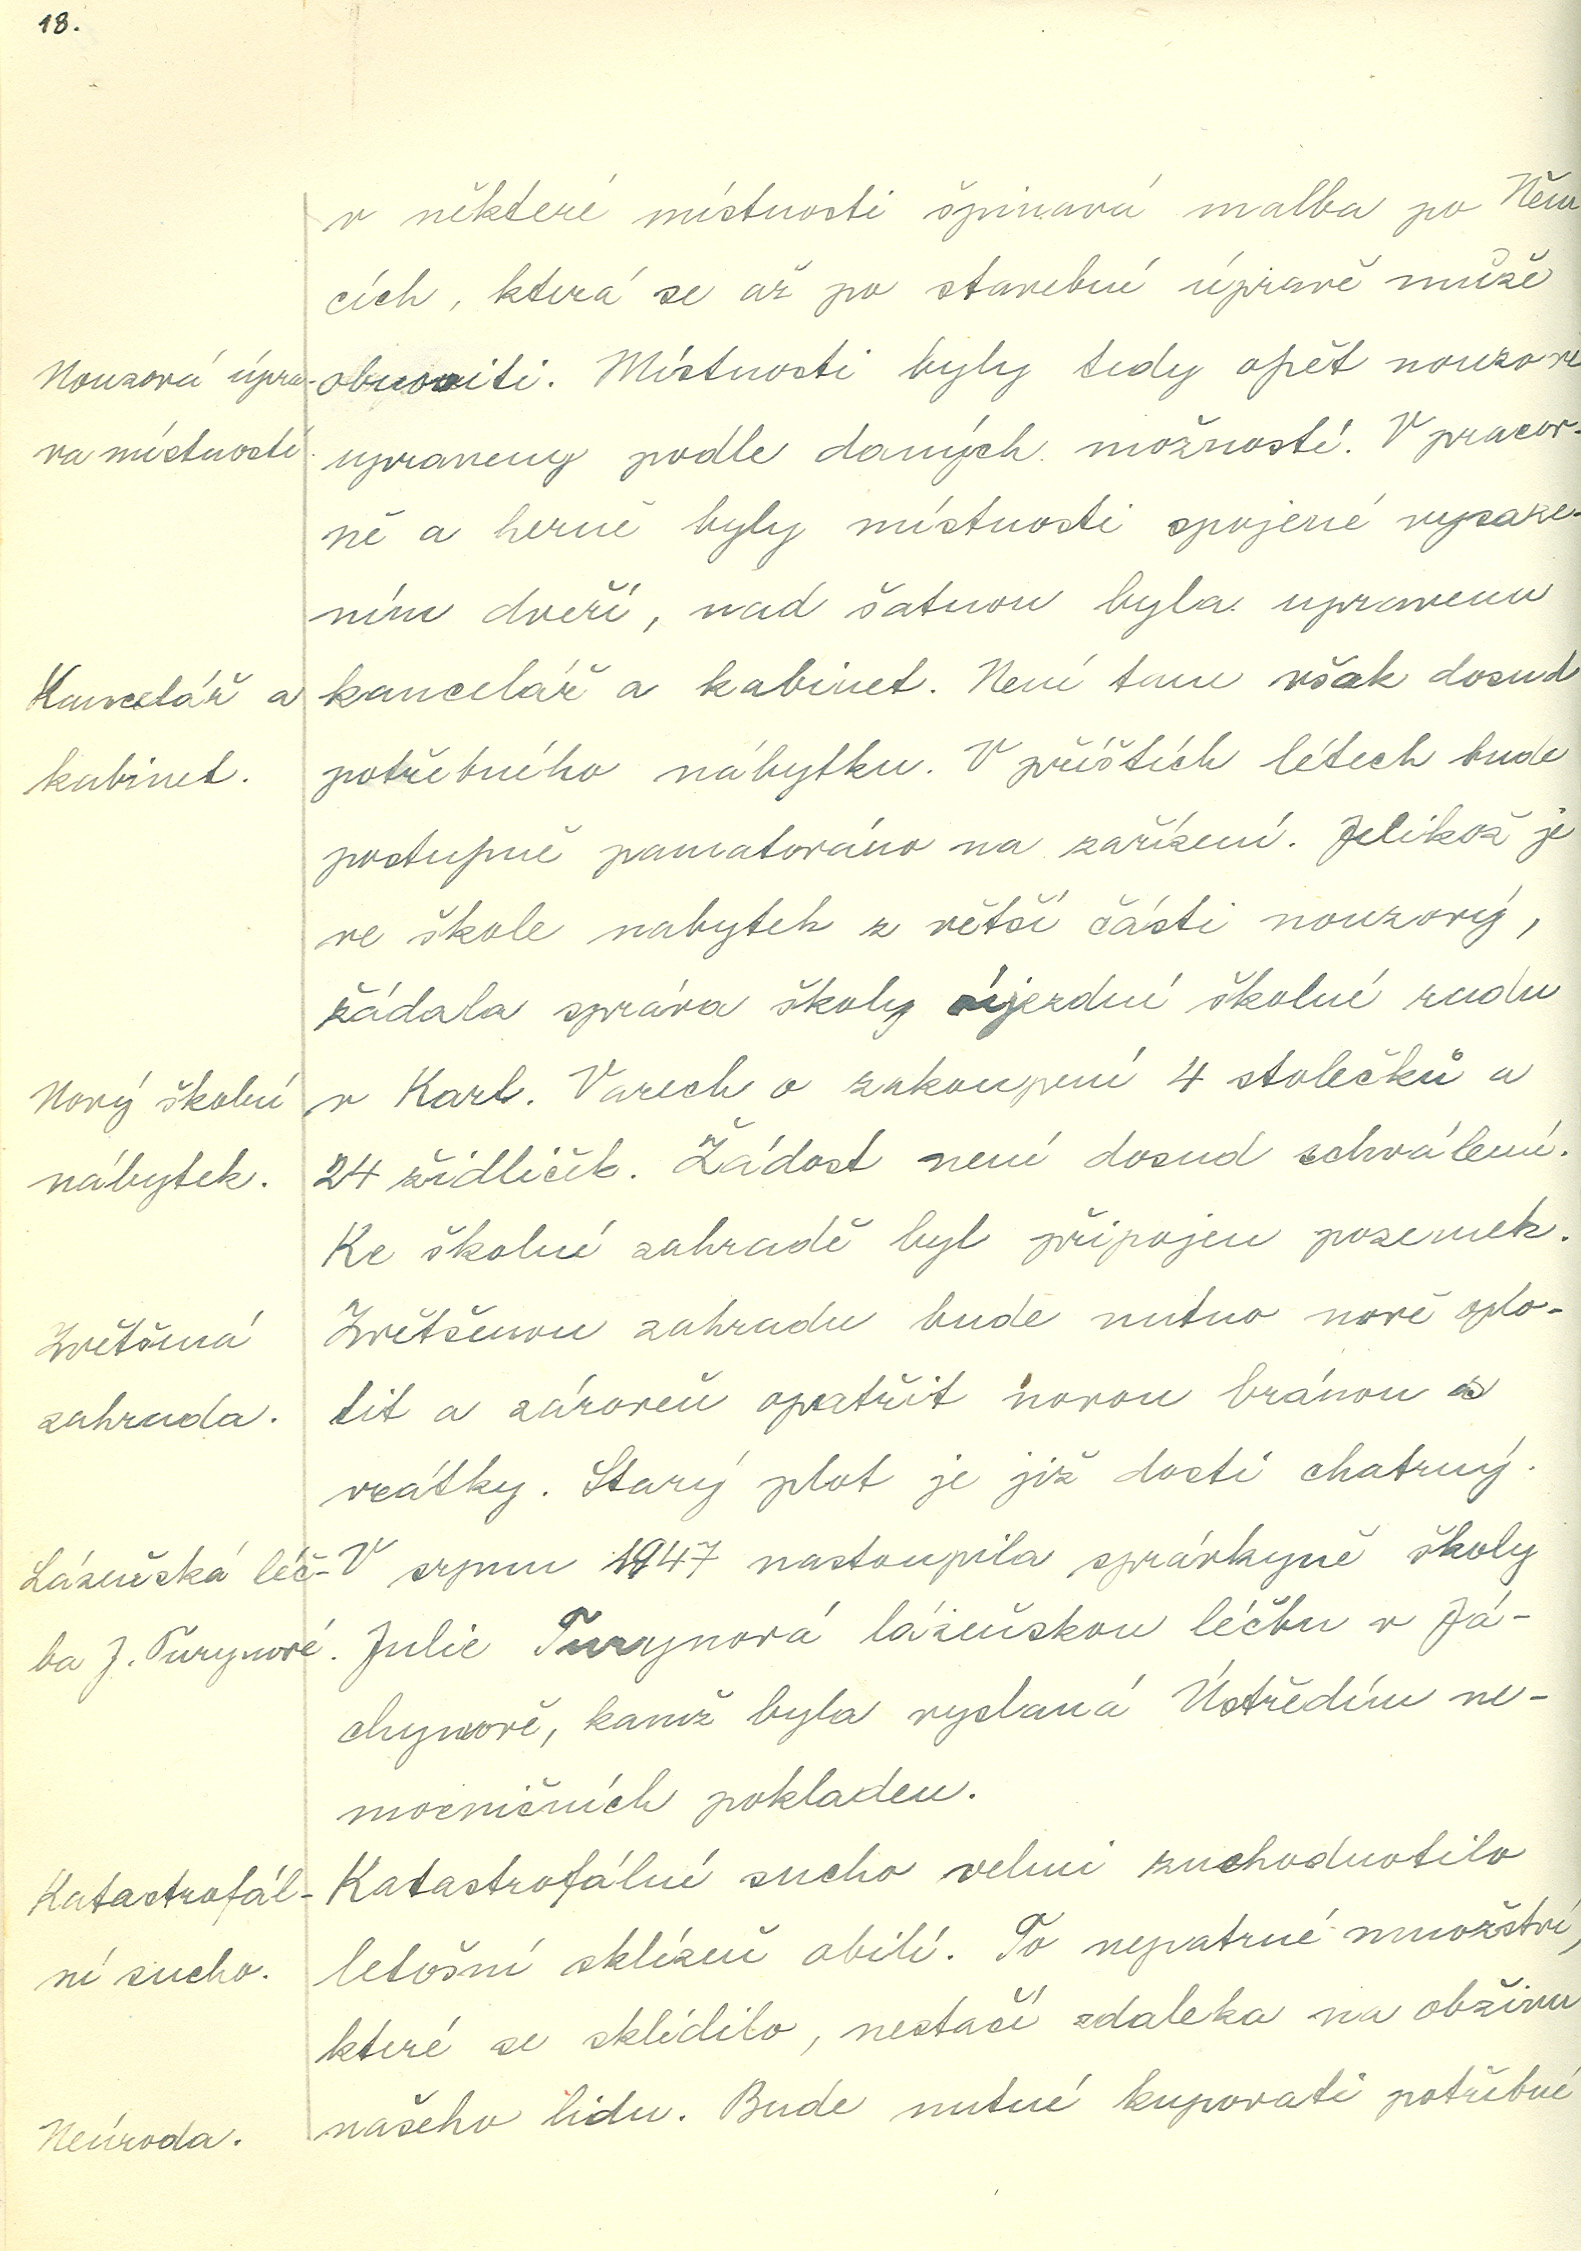 18.
v některé místnosti špinavá malba po Něm
cích, která se až po stavebné úpravě může
Nouzová úpra-
obnoviti. Místnosti byly tedy opět nouzově
va místností.
upraveny podle daných možností. V pracov-
ně a herně byly místnosti spojené vysaze-
ním dveří, nad šatnou byla upravena
Kancelář a
kancelář a kabinet. Není tam však dosud
kabinet.
potřebného nábytku. V příštích létech bude
postupně pamatováno na zařízení. Jelikož je
ve škole nabytek z větší části nouzový,
žádala správa školy újezdní školné radu
Nový školní
v Karl. Varech o zakoupení 4 stolečků a
nábytek.
24 židliček. Žádost není dosud schválení.
Ke školné zahradě byl připojen pozemek.
Zvětšená
Zvětšenou zahradu bude nutno nově oplo-
zahrada.
tit a zároveň opatřit novou bránou a
vrátky. Starý plot je již dosti chatrný.
Lázeňská léč-
V srpnu 1947 nastoupila správkyně školy
ba J. Turynové.
Julie Turynová lázeňskou léčbu v Já-
chymově, kamž byla vyslaná Ústředím ne-
mocničních pokladen.
Katastrofál-
Katastrofálné sucho velmi znehodnotilo
ní sucho.
letošní sklizeň obilí. To nepatrné množství,
které se sklidilo, nestačí zdaleka na obživu
Neúroda.
našeho lidu. Bude nutné kupovati potřebné